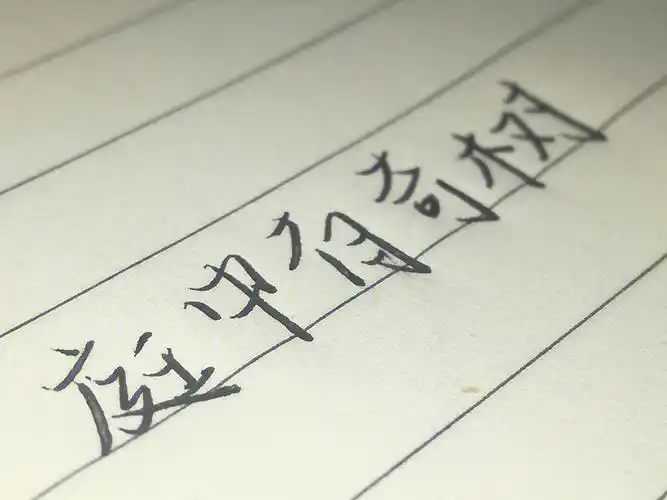 庭中有奇树